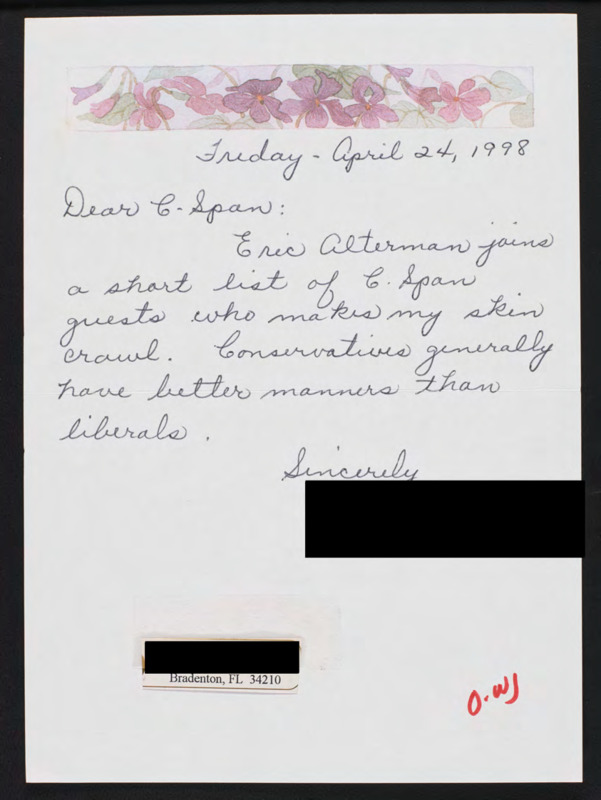 Friday - April 24, 1998
Dear C-Span:
Eric Alterman joins
a short list of C. Span
guests who makes my skin
crawl. Conservatives generally
have better manners than
liberals.
Sincerely
Bradenton, FL 34210